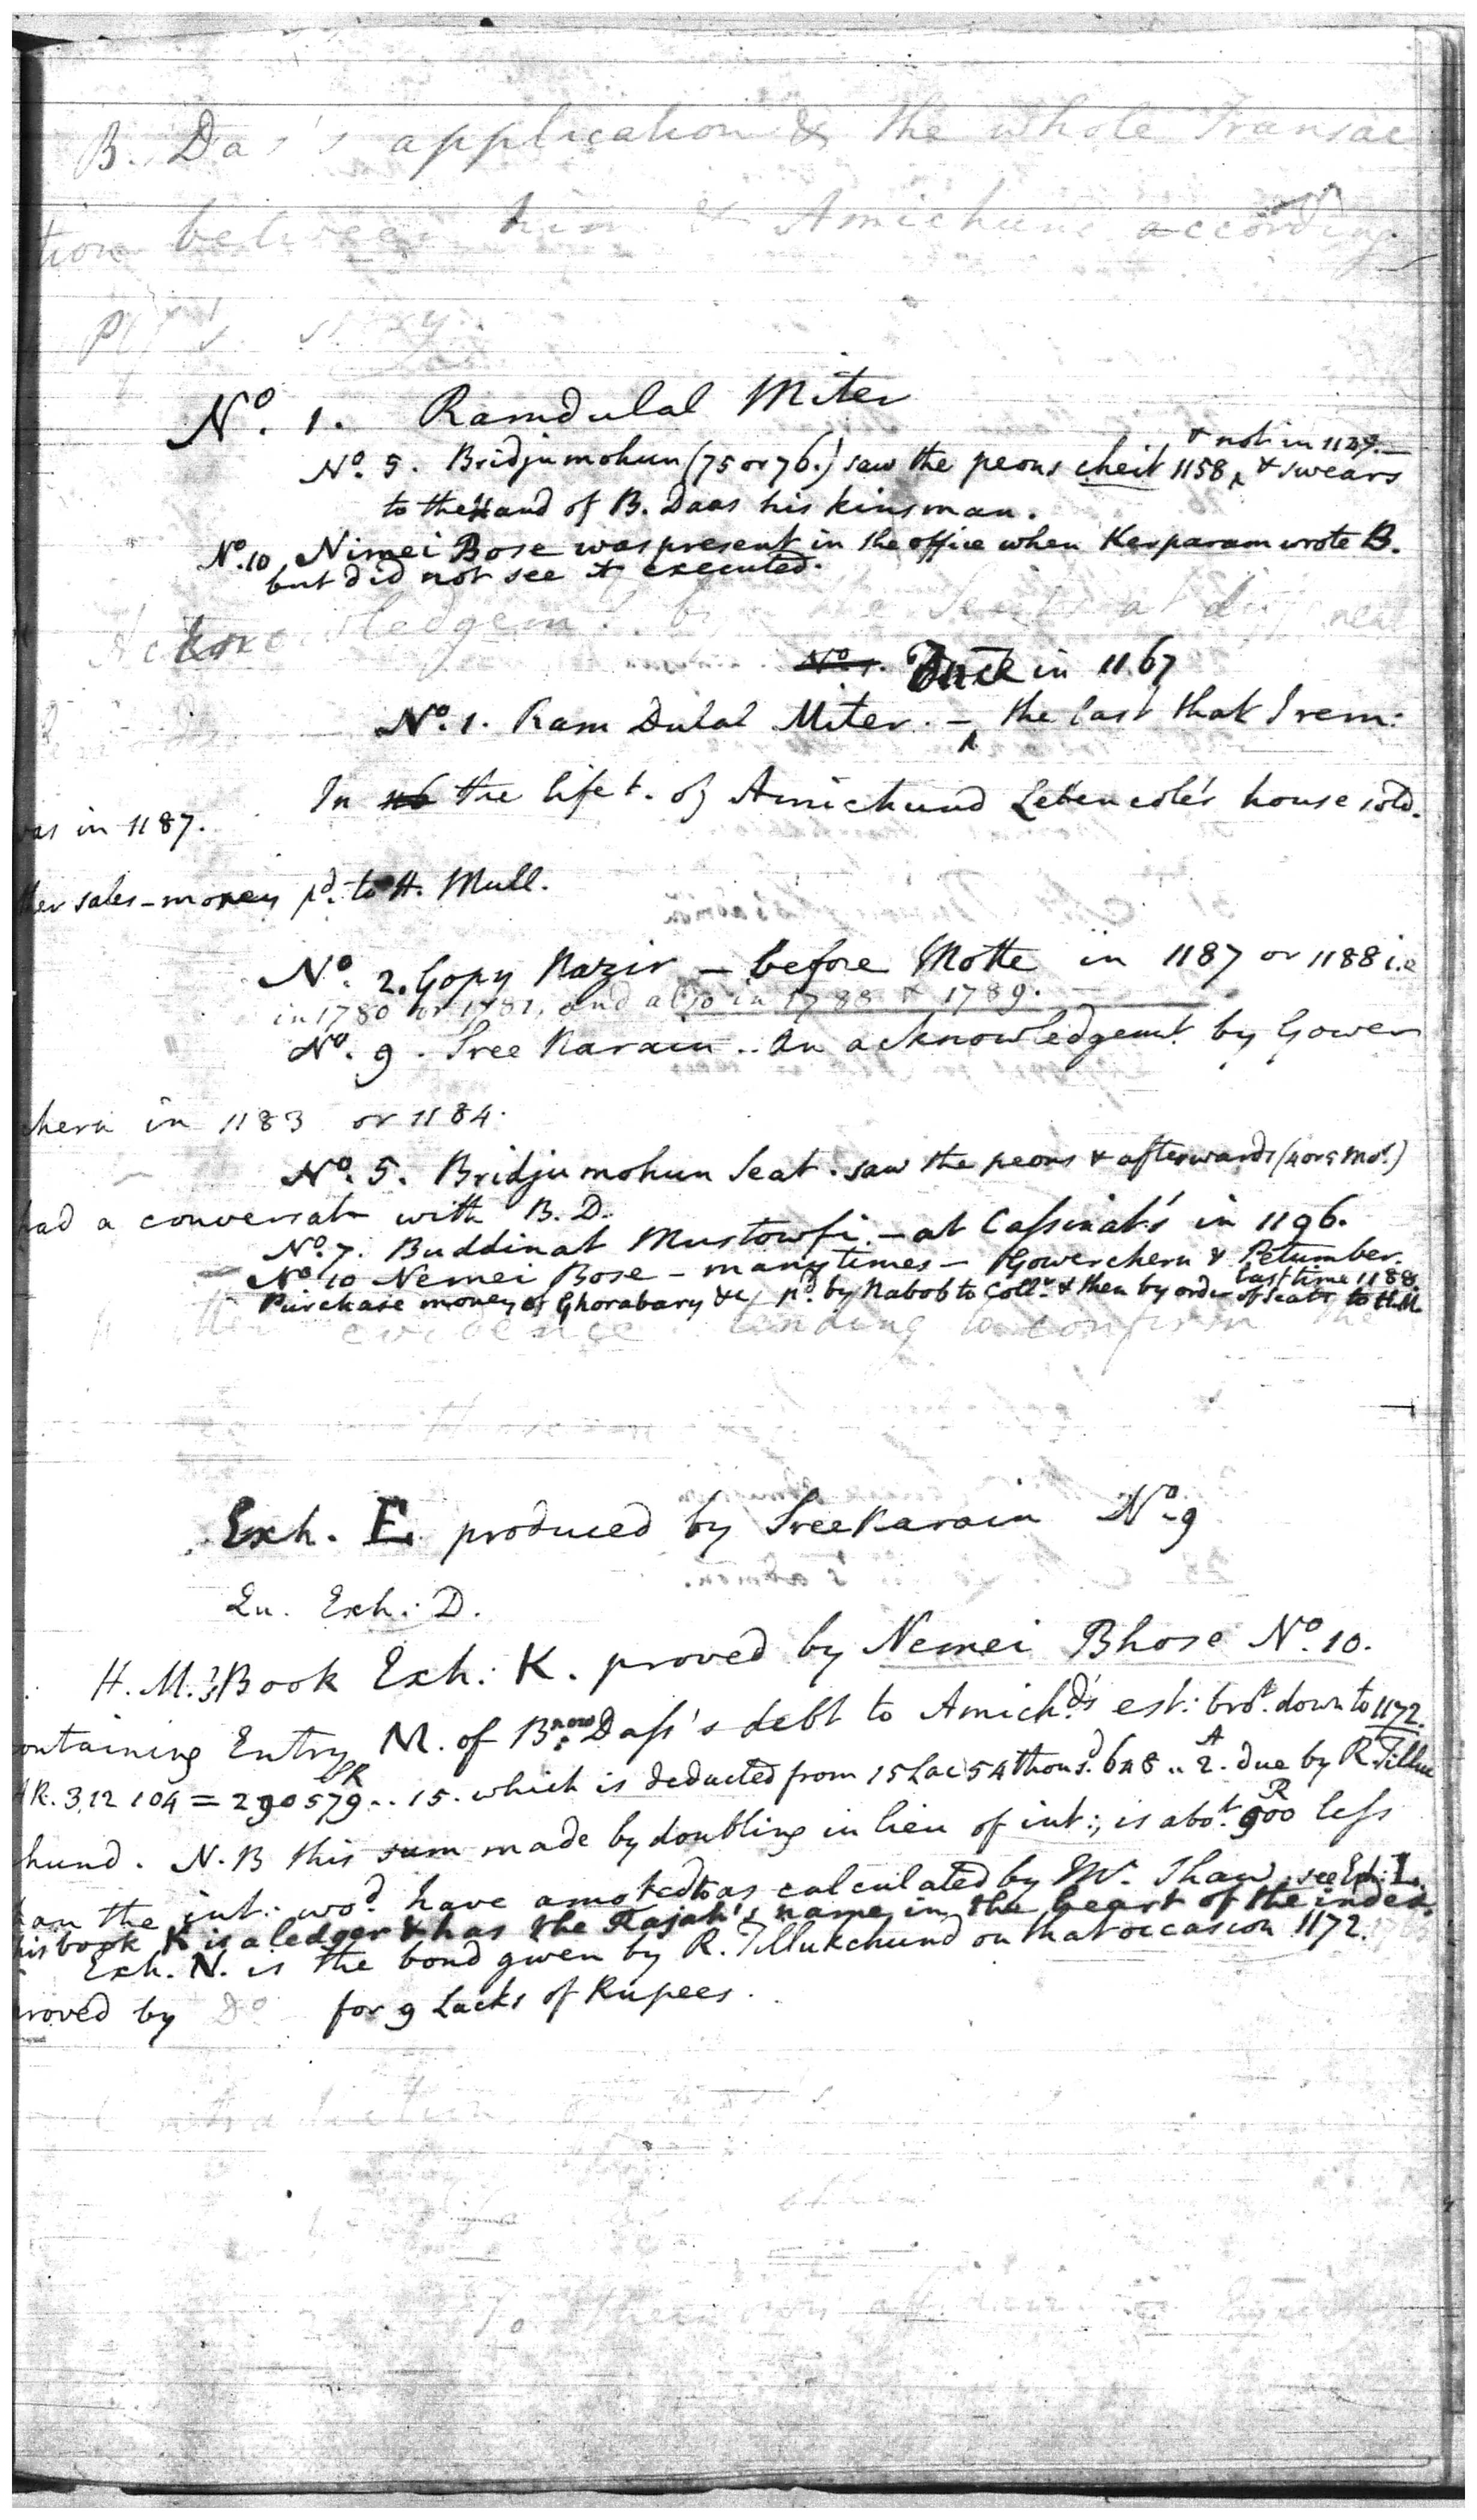 B. Das's application & the whole Transac
tion between him & Amichund according
Plt's story.
No. 1. Ramdulal Miter
& not in 1129.—
No. 5. Bridjumohun (75 or 76.) saw the peons cheit 1158, & swears
to the Hand of B. Daas his kinsman.
No. 10 Nimei Bose was present in the office when Kerparam wrote B.
but did not see it executed.
Acknowledgemt. by the Seats at different
No. 1. Once in 1167
No. 1. Ram Dulal Miter. — the last that I rem:
In the life t. of Amichund house sold.
was in 1187.
sales-money pd. to H. Mull.
No. 2. Gopy Nazir — before Motte in 1187 or 1188 i.e
in 1780 or 1781, and also in 1788 & 1789.
No. 9. Sree Narain.. An acknowledgemt. by Gower
chern in 1183 or 1184.
No. 5. Bridjumohun Seat. saw the peons & afterwards (4 or 5 Mos.)
had a conversatn with B. D.
No. 7. Buddinat Mustowfi. — at Cassinat's in 1196.
No. 10 Nemei Bose — many times — Gowerchern & Petumber.
last time 1188
Purchase money of Ghorabary &c pd. by Nabob to Collr. & then by order of Seats to H.M.
evidence tending to confirm the
Exh. E. produced by Sree Narain No. 9
Qu. Exh: D.
H. M.'s Book Exh: K. proved by Nemei Bhose No. 10.
containing Entry M. of Bnow Dass's debt to Amichd's est: brot. down to 1172.
AR. 3,12 104 = SR 290579.. 15. which is deducted from 15 Lac 54 thousd. 648 .. 2 A. due by R. Tilluc
chund. N.B this sum made by doubling in lieu of int:, is abot. 900 R less
than the int: wod. have amoted to as calculated by Mr. Shaw, see Exh: L.
this book K is a ledger & has the Rajah's name in the heart of the index.
Exh. N. is the bond given by R. Tillukchund on that occasion 1172.
proved by Do for 9 Lacks of Rupees.